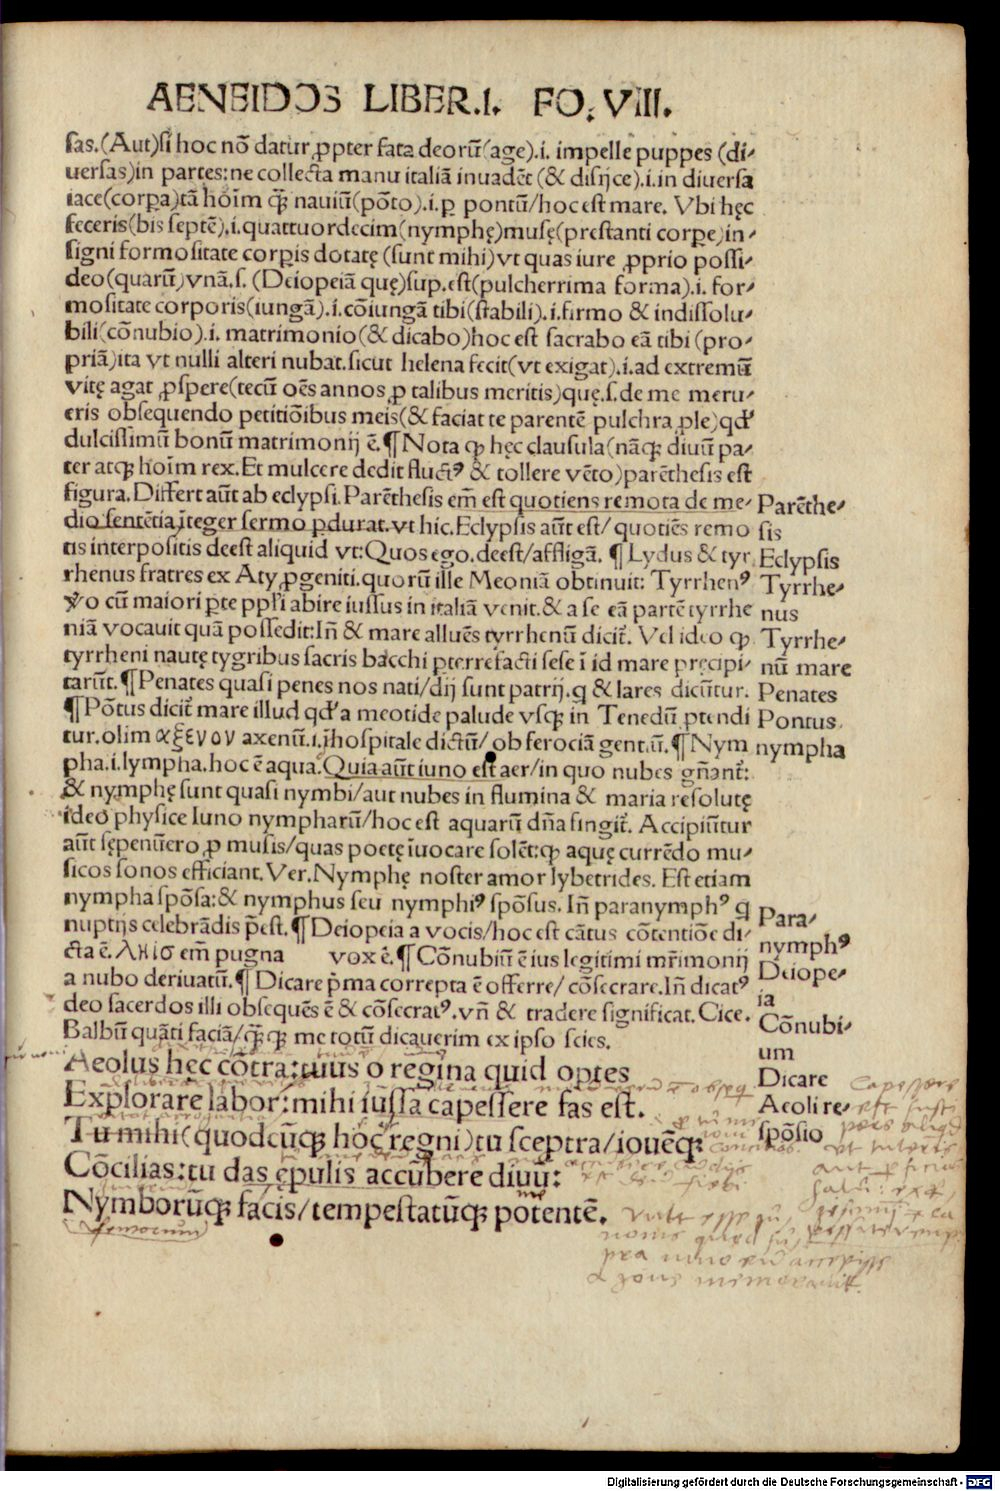 AENEIDOS LIBER.I. FO. VIII.
sas.(Aut)si hoc nō datur ꝓpter fata deorū(age).i. impelle puppes (di⸗
uersas)in partes:ne collecta manu italiā inuadēt (& disijce).i.in diuersa
iace(corpa)tā hoīm qꝫ̄ nauiū(pōto).i.ꝑ pontū/hoc est mare. Vbi hęc
feceris(bis septē).i.quattuordecim(nymphę)musę(prestanti corꝑe)in⸗
signi formositate corꝑis dotatę (sunt mihi)vt quas iure ꝓprio possi⸗
deo(quarū)vnā.s. (Deiopeiā quę)sup.est(pulcherrima forma).i. for⸗
mositate corporis(iungā).i.cōiungā tibi(stabili).i.firmo & indissolu⸗
bili(cōnubio).i. matrimonio(& dicabo)hoc est sacrabo eā tibi (pro⸗
priā)ita vt nulli alteri nubat.sicut helena fecit(vt exigat).i.ad extremū
vitę agat ꝓspere(tecū oēs annos ꝓ talibus meritis)quę.s.de me meru⸗
eris obsequendo petitiōibus meis(& faciat te parentē pulchra ꝓle)qd'
dulcissimū bonū matrimonij ē.¶Nota ꝙ hęc clausula(nāqꝫ diuū pa⸗
ter atqꝫ hoīm rex.Et mulcere dedit fluctꝰ & tollere vēto)parēthesis est
figura.Differt aūt ab eclypsi.Parēthesis em̄ est quotiens remota de me⸗
dio sentētia īteger sermo ꝑdurat.vt hic.Eclypsis aūt est/ quotiēs remo
tis interpositis deest aliquid vt:Quos ego.deest/affligā. ¶Lydus & tyr
rhenus fratres ex Aty ꝓgeniti.quorū ille Meoniā obtinuit: Tyrrhenꝰ
ṽo cū maiori ꝑte ppl'i abire iussus in italiā venit.& a se eā partē tyrrhe
niā vocauit quā possedit:Iñ & mare alluēs tyrrhenū dicit̄. Vel ideo ꝙ
tyrrheni nautę tygribus sacris bacchi ꝑterrefacti sese ī id mare pręcipi⸗
tarūt.¶Penates quasi penes nos nati/dij sunt patrij.q & lares dicūtur.
¶Pōtus dicit̄ mare illud qd' a meotide palude vsqꝫ in Tenedū ꝓtendi
tur.olim αξενον axenū.i.īhospitale dictū/ ob ferociā gentiū.¶Nym
pha.i.lympha.hoc ē aqua.Quia aūt iuno est aer/in quo nubes gñant̄:
& nymphę sunt quasi nymbi/aut nubes in flumina & maria resolutę
ideo physice Iuno nympharū/hoc est aquarū dña fingit̄. Accipiūtur
aūt sępenūero ꝓ musis/quas poetę īuocare solēt:ꝙ aquę currēdo mu⸗
sicos sonos efficiant.Ver.Nymphę noster amor lybetrides. Est etiam
nympha spōsa:& nymphus seu nymphiꝰ spōsus. Iñ paranymphꝰ q
nuptijs celebrādis p̄est.¶Deiopeia a vocis/hoc est cātus cōtentiōe di⸗
cta ē. ληισ em̄ pugna vox ē.¶Cōnubiū ē ius legitimi mr̄imonij
a nubo deriuatū.¶Dicare p̄ma correpta ē offerre/ cōsecrare.Iñ dicatꝰ
deo sacerdos illi obsequēs ē & cōsecratꝰ.vñ & tradere significat.Cice.
Balbū quāti faciā/qꝫ̄qꝫ me totū dicauerim ex ipso scies.
Aeolus hęc cōtra:tuus o regina quid optes
Explorare labor:mihi iussa capessere fas est.
Tu mihi(quodcūqꝫ hoc regni)tu sceptra/iouēqꝫ
Cōcilias:tu das ępulis accūbere diuū:
Nymborūqꝫ facis/tempestatūqꝫ potentē.
Parēthe⸗
sis
Eclypsis
Tyrrhe⸗
nus
Tyrrhe⸗
nū mare
Penates
Pontus
nympha
Para⸗
nymphꝰ
Deiope⸗
ia
Cōnubi⸗
um
Dicare
Aeoli re⸗
spōsio
Capessere
est
aut
memorauit.
Digitalisierung gefördert durch die Deutsche Forschungsgemeinschaft - DFG